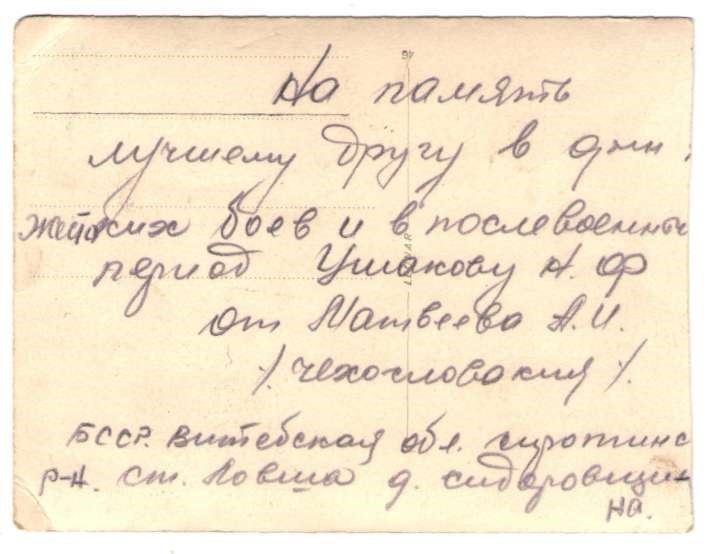 На память
лучшему другу в дни
жестоких боев и в послевоенный
период Ушакову Н. Ф
от Матвеева А. И.
/. Чехословакия /.
БССР. Витебская обл. Сиротинс
р-н. ст. Ловша д. Сидоровщи-
на.